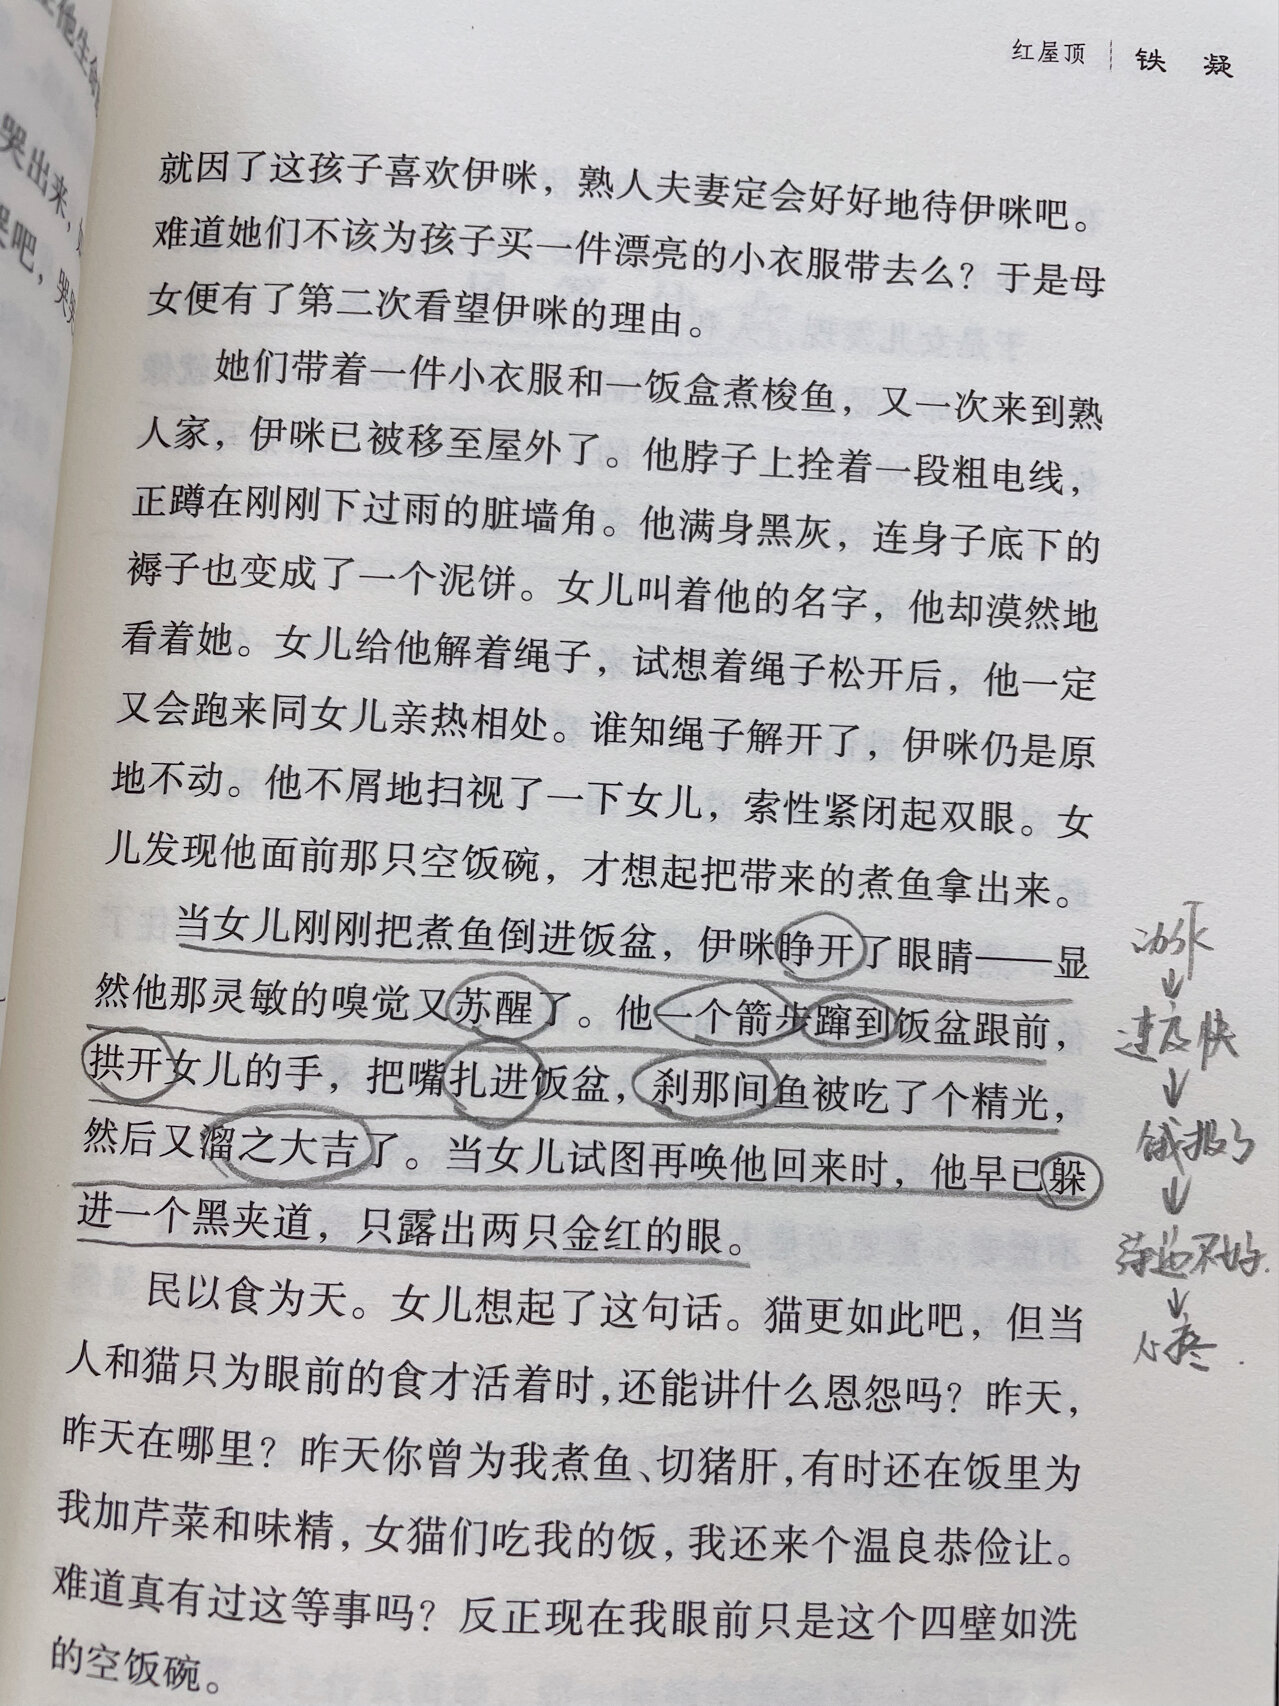 红屋顶 铁 凝
就因了这孩子喜欢伊咪，熟人夫妻定会好好地待伊咪吧。
难道她们不该为孩子买一件漂亮的小衣服带去么？于是母
女便有了第二次看望伊咪的理由。
她们带着一件小衣服和一饭盒煮梭鱼，又一次来到熟
人家，伊咪已被移至屋外了。他脖子上拴着一段粗电线，
正蹲在刚刚下过雨的脏墙角。他满身黑灰，连身子底下的
褥子也变成了一个泥饼。女儿叫着他的名字，他却漠然地
看着她。女儿给他解着绳子，试想着绳子松开后，他一定
又会跑来同女儿亲热相处。谁知绳子解开了，伊咪仍是原
地不动。他不屑地扫视了一下女儿，索性紧闭起双眼。女
儿发现他面前那只空饭碗，才想起把带来的煮鱼拿出来。
当女儿刚刚把煮鱼倒进饭盆，伊咪睁开了眼睛——显
然他那灵敏的嗅觉又苏醒了。他一个箭步蹿到饭盆跟前，
拱开女儿的手，把嘴扎进饭盆，刹那间鱼被吃了个精光，
然后又溜之大吉了。当女儿试图再唤他回来时，他早已躲
进一个黑夹道，只露出两只金红的眼。
民以食为天。女儿想起了这句话。猫更如此吧，但当
人和猫只为眼前的食才活着时，还能讲什么恩怨吗？昨天，
昨天在哪里？昨天你曾为我煮鱼、切猪肝，有时还在饭里为
我加芹菜和味精，女猫们吃我的饭，我还来个温良恭俭让。
难道真有过这等事吗？反正现在我眼前只是这个四壁如洗
的空饭碗。
动作
↓
速度快
↓
饿极了
↓
待遇不好.
↓
心疼.
哭出来，
哭吧，